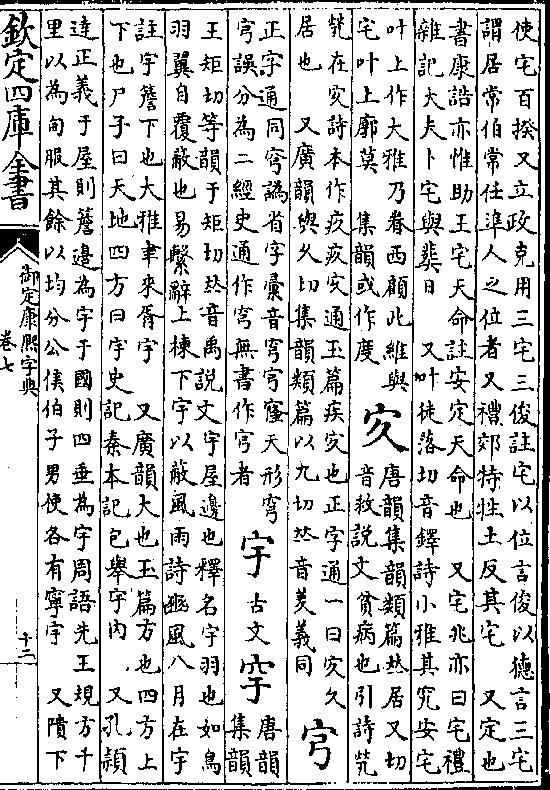 使宅百揆又立政克用三宅三俊註宅以位言俊以德言三宅
謂居常伯常任準人之位者又禮郊特牲土反其宅　又定也
書康誥亦惟助王宅天命註安定天命也　又宅兆亦曰宅禮
雜記大夫卜宅與葬日　又叶徒落切音鐸詩小雅其究安宅
叶上作大雅乃眷西顧此維與
宅叶上廓莫　集韻或作度
㝌
唐韻集韻類篇𠀤居又切
音救說文貧病也引詩煢
煢在㝌詩本作疚疚㝌通玉篇疾㝌也正字通一曰㝌久
居也　又廣韻與久切集韻類篇以九切𠀤音羑義同
㝐
正字通同穹譌省字彙音穹穹窿天形穹
㝐誤分為二經史通作穹無書作㝐者
宇
古文
唐韻
集韻
王矩切等韻于矩切𠀤音禹說文宇屋邊也釋名宇羽也如鳥
羽翼自覆蔽也易繫辭上棟下宇以蔽風雨詩豳風八月在宇
註宇簷下也大雅聿來胥宇　又廣韻大也玉篇方也四方上
下也尸子曰天地四方曰宇史記秦本記包舉宇內　又孔穎
達正義于屋則簷邊為宇于國則四垂為宇周語先王規方千
里以為甸服其餘以均分公侯伯子男使各有寧宇　又隤下
欽定四庫全書
御定康熙字典
卷七
十二